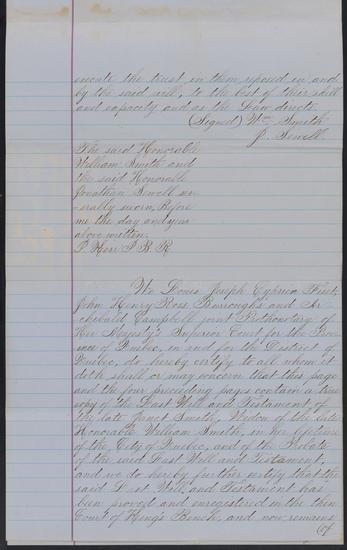 execute the trust in them reposed in and
by the said will, to the best of their skill
and capacity and as the Law directs.
(Signed) Wm Smith
J. Sewell
The said Honorable
William Smith and
the said Honorable
Jonathan Sewell sev-
erally sworn, Before
me the day and year
above written.
P Kerr J. B. R
We Louis Joseph Cyprien Fiset
John Henry Ross Burroughs and Ar-
chibald Campbell joint Prothonotary of
Her Majesty's Superior Court for the Prov
ince of Quebec, in and for the District of
Quebec, do hereby certify to all whom it
doth shall or may concern that this page
and the four preceeding pages contain a true
copy of the Last Will and Testament of
the late Janet Smith, Widow of the late
Honorable William Smith, in her lifetime
of the City of Quebec, and of the Probate
of the said Last Will and Testament,
and we do hereby further certify that the
said Last Will and Testament has
been proved and enregistered in the then
Court of King's Bench, and now remains
(of